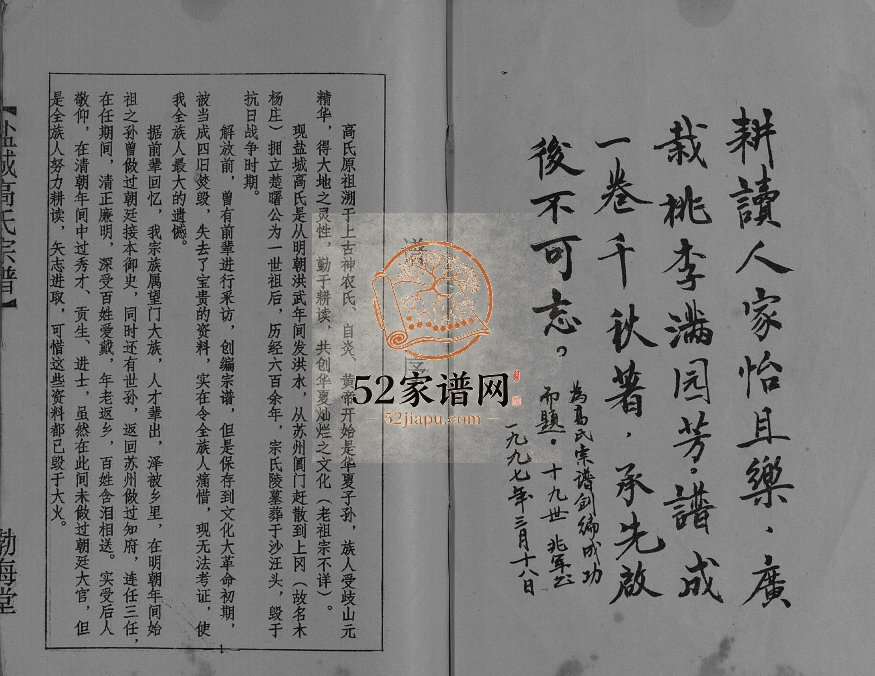 耕讀人家怡且樂．廣
栽桃李满园芳．譜成
一卷千秋箸．承先啟
後不可忘。
為高氏宗谱创编成功
而题．十九世 兆军
一九九七年三月十八日
谱序
高氏原祖溯于上古神农氏、自炎、黄帝开始是华夏子孙，族人受歧山元
精华，得大地之灵性，勤于耕读，共创华夏灿烂之文化（老祖宗不详）。
现盐城高氏是从明朝洪武年间发洪水，从苏州阊门赶散到上冈（故名木
杨庄）拥立楚曙公为一世祖后，历经六百余年，宗氏陵墓葬于沙汪头，毁于
抗日战争时期。
解放前，曾有前辈进行采访，创编宗谱，但是保存到文化大革命初期，
被当成四旧焚毁，失去了宝贵的资料，实在令全族人痛惜，现无法考证，使
我全族人最大的遗憾。
据前辈回忆，我宗族属望门大族，人才辈出，泽被乡里，在明朝年间始
祖之孙曾做过朝廷接本御史，同时还有世孙，返回苏州做过知府，连任三任，
在任期间，清正廉明，深受百姓爱戴，年老返乡，百姓含泪相送。实受后人
敬仰，在清朝年间中过秀才、贡生、进士，虽然在此间未做过朝廷大官，但
是全族人努力耕读，矢志进取，可惜这些资料都已毁于大火。
1
【盐城高氏宗谱】
渤海堂
52家谱网
52jiapu.com